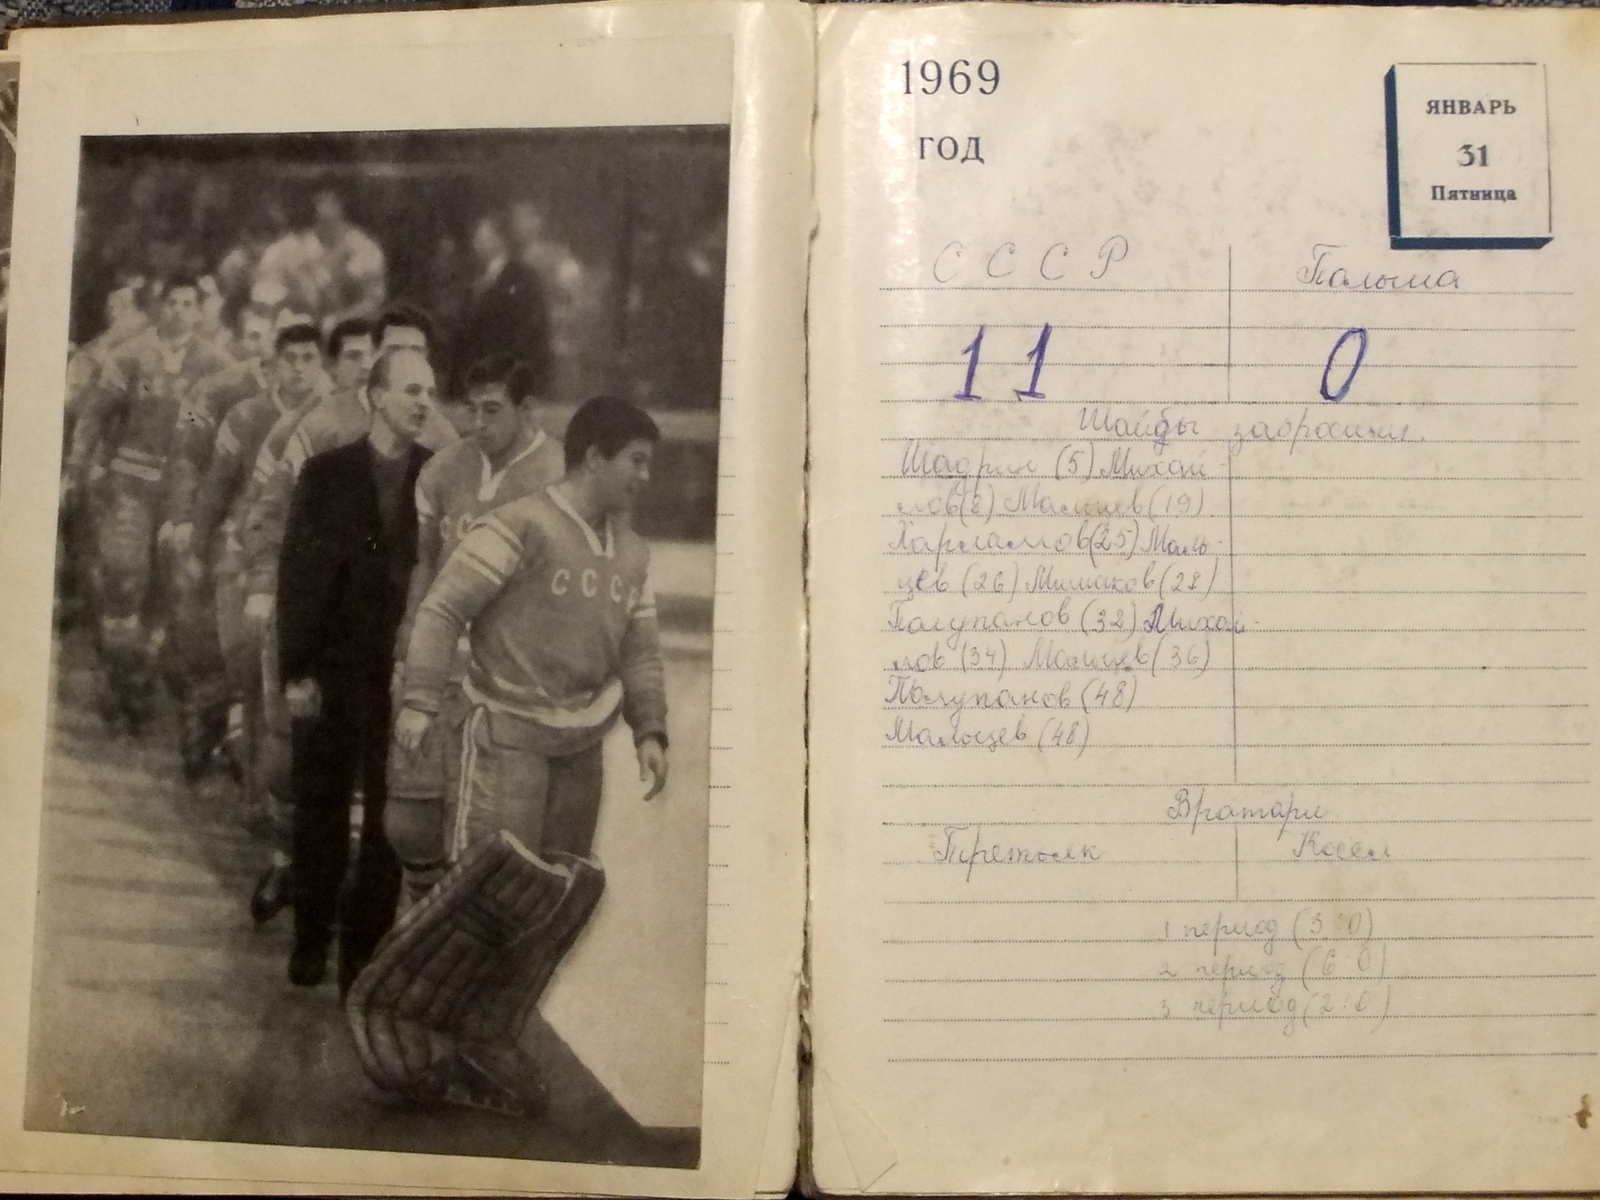 СССР
1969
ГОД
ЯНВАРЬ
31
Пятница
СССР Польша
11 0
Шайбы забросили.
Шадрин (5) Михай-
лов(8) Мальцев(19)
Харламов(25) Маль-
цев (26) Мишаков(28)
Полупанов (32) Михай-
лов (34) Мальцев(36)
Полупанов (48)
Мальцев (48)
Вратари
Третьяк Косел
1 период (3:0)
2 период (6:0)
3 период (2:0)